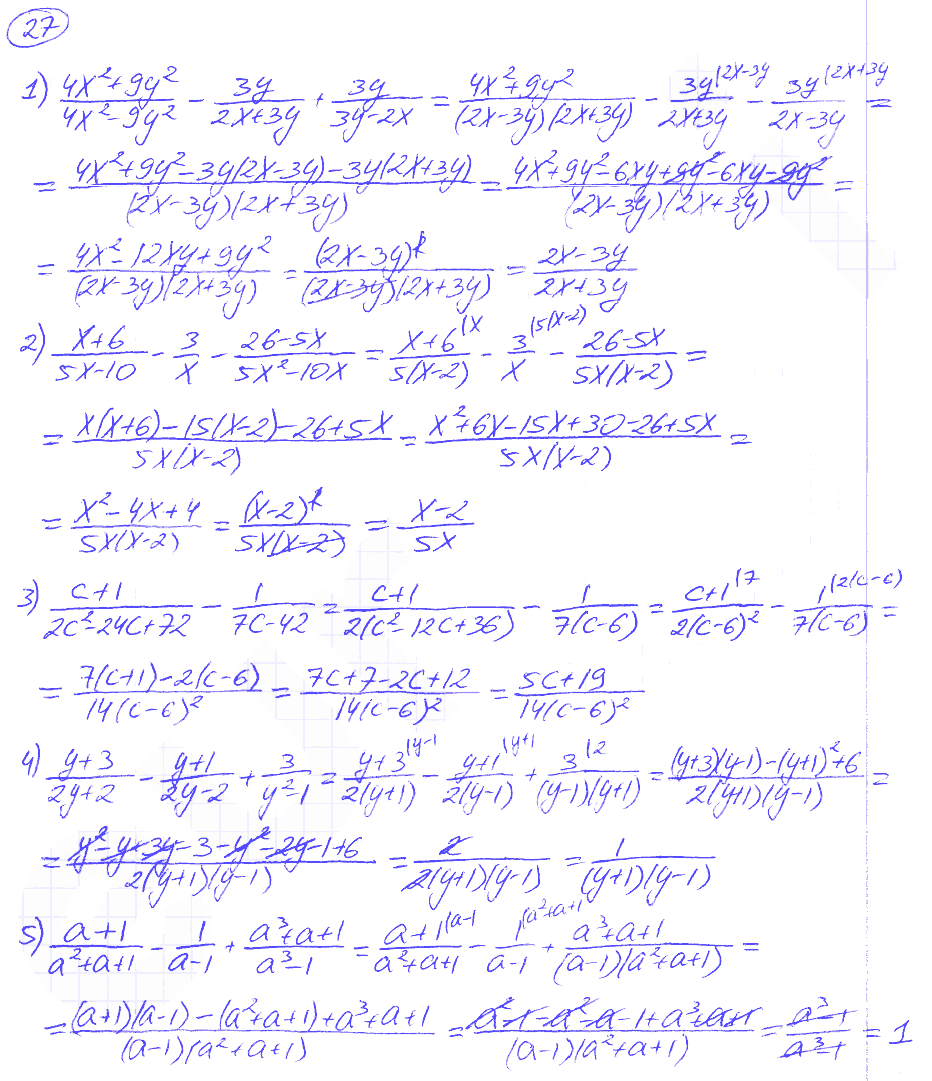 27
1) (4x²+9y²)/(4x²-9y²) - 3y/(2x+3y) + 3y/(3y-2x) = (4x²+9y²)/((2x-3y)(2x+3y)) - 3y^(2x-3y/(2x+3y) - 3y^(2x+3y/(2x-3y) =
= (4x²+9y²-3y(2x-3y)-3y(2x+3y))/((2x-3y)(2x+3y)) = (4x²+9y²-6xy+9y²-6xy-9y²)/((2x-3y)(2x+3y)) =
= (4x²-12xy+9y²)/((2x-3y)(2x+3y)) = (2x-3y)²/((2x-3y)(2x+3y)) = (2x-3y)/(2x+3y)
2) (x+6)/(5x-10) - 3/x - (26-5x)/(5x²-10x) = (x+6)^(x/(5(x-2)) - 3^(5(x-2)/x - (26-5x)/(5x(x-2)) =
= (x(x+6)-15(x-2)-26+5x)/(5x(x-2)) = (x²+6x-15x+30-26+5x)/(5x(x-2)) =
= (x²-4x+4)/(5x(x-2)) = (x-2)²/(5x(x-2)) = (x-2)/(5x)
3) (c+1)/(2c²-24c+72) - 1/(7c-42) = (c+1)/(2(c²-12c+36)) - 1/(7(c-6)) = (c+1)^(7/(2(c-6)²) - 1^(2(c-6)/(7(c-6)) =
= (7(c+1)-2(c-6))/(14(c-6)²) = (7c+7-2c+12)/(14(c-6)²) = (5c+19)/(14(c-6)²)
4) (y+3)/(2y+2) - (y+1)/(2y-2) + 3/(y²-1) = (y+3)^(y-1/(2(y+1)) - (y+1)^(y+1/(2(y-1)) + 3^(2/((y-1)(y+1)) = ((y+3)(y-1)-(y+1)²+6)/(2(y+1)(y-1)) =
= (y²-y+3y-3-y²-2y-1+6)/(2(y+1)(y-1)) = 2/(2(y+1)(y-1)) = 1/((y+1)(y-1))
5) (a+1)/(a²+a+1) - 1/(a-1) + (a³+a+1)/(a³-1) = (a+1)^(a-1/(a²+a+1) - 1^(a²+a+1/(a-1) + (a³+a+1)/((a-1)(a²+a+1)) =
= ((a+1)(a-1)-(a²+a+1)+a³+a+1)/((a-1)(a²+a+1)) = (a²-1-a²-a-1+a³+a+1)/((a-1)(a²+a+1)) = (a³-1)/(a³-1) = 1